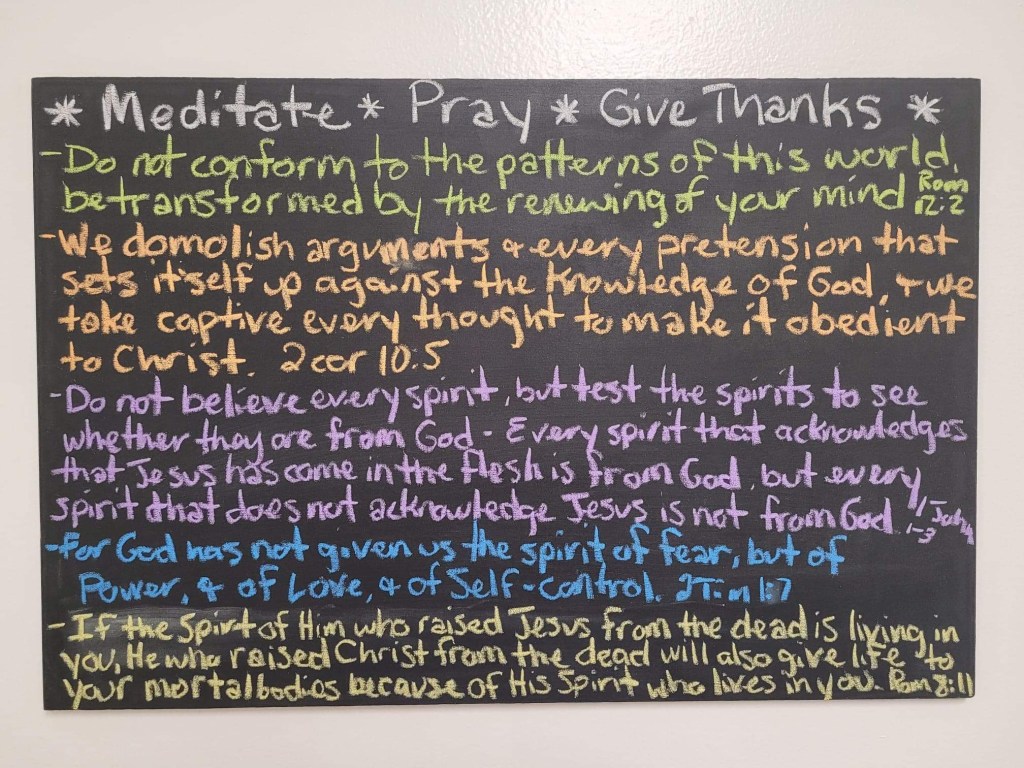 * Meditate * Pray * Give Thanks *
- Do not conform to the patterns of this world,
be transformed by the renewing of your mind Rom 12:2
- We domolish arguments & every pretension that
sets it'self up against the Knowledge of God, & we
take captive every thought to make it obedient
to Christ. 2 cor 10:5
- Do not believe every spirit, but test the spirits to see
whether they are from God - Every spirit that acknowledges
that Jesus has come in the flesh is from God, but every
spirit that does not acknowledge Jesus is not from God. 1 John 4 1-3
- For God has not given us the spirit of fear, but of
Power, & of Love, & of Self-Control. 2 Tim 1:7
- If the Spirt of Him who raised Jesus from the dead is living in
you, He who raised Christ from the dead will also give life to
your mortal bodies because of His Spirit who lives in you. Rom 8:11